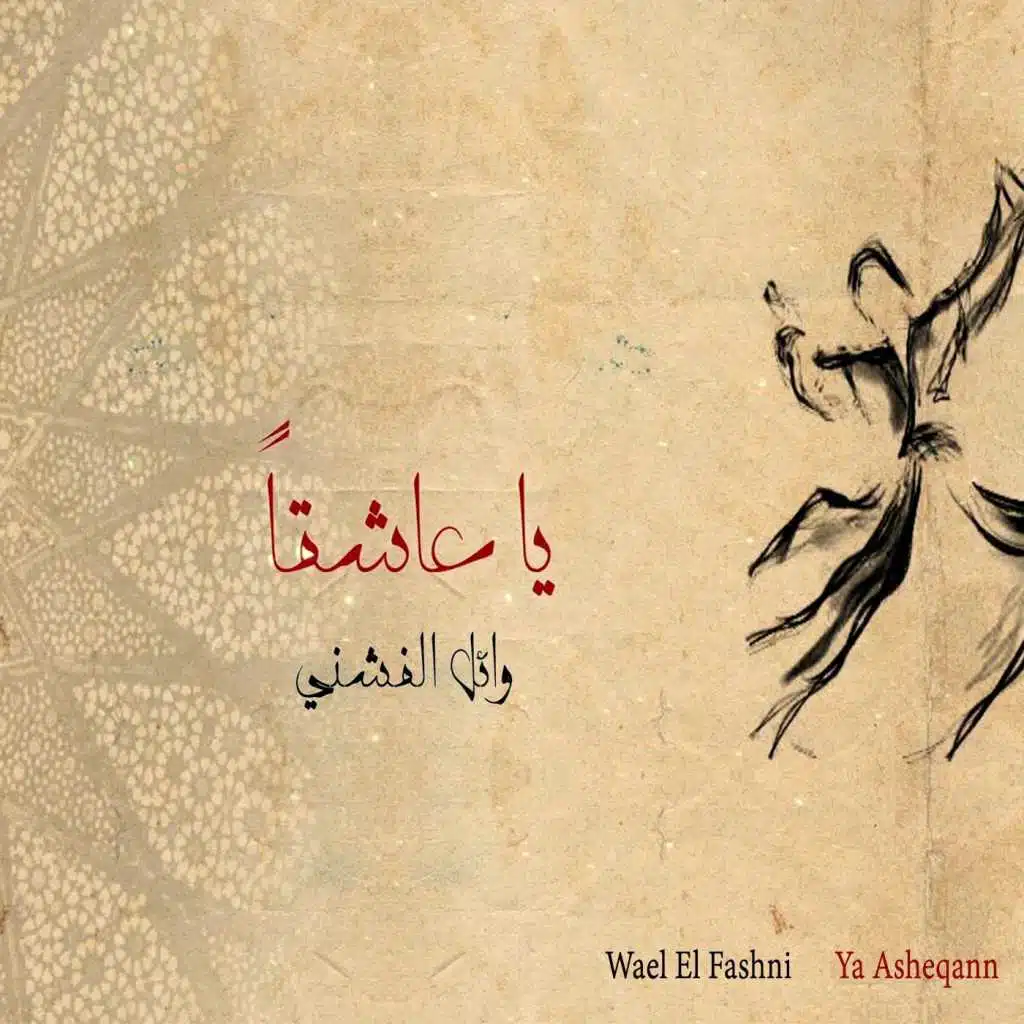 يا عاشقاً
وائل الفشني
Wael El Fashni Ya Asheqann